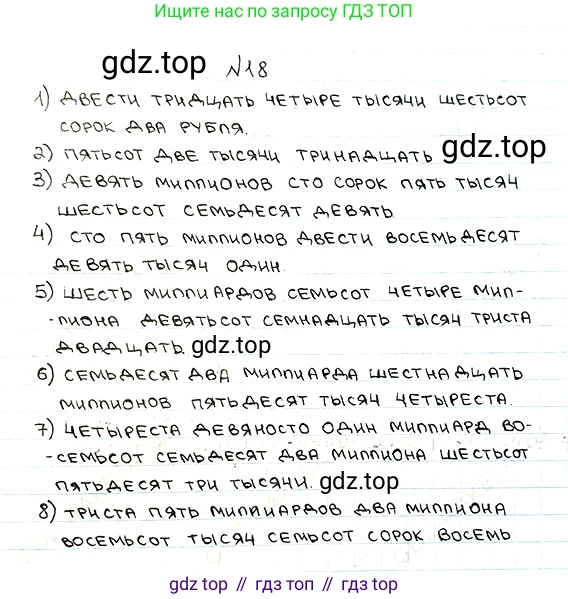 Ищите нас по запросу ГДЗ ТОП
gdz.top №18
1) ДВЕСТИ ТРИДЦАТЬ ЧЕТЫРЕ ТЫСЯЧИ ШЕСТЬСОТ
СОРОК ДВА РУБЛЯ.
2) ПЯТЬСОТ ДВЕ ТЫСЯЧИ ТРИНАДЦАТЬ gdz.top
3) ДЕВЯТЬ МИЛЛИОНОВ СТО СОРОК ПЯТЬ ТЫСЯЧ
ШЕСТЬСОТ СЕМЬДЕСЯТ ДЕВЯТЬ
4) СТО ПЯТЬ МИЛЛИОНОВ ДВЕСТИ ВОСЕМЬДЕСЯТ
ДЕВЯТЬ ТЫСЯЧ ОДИН.
5) ШЕСТЬ МИЛЛИАРДОВ СЕМЬСОТ ЧЕТЫРЕ МИЛ-
-ЛИОНА ДЕВЯТЬСОТ СЕМНАДЦАТЬ ТЫСЯЧ ТРИСТА
ДВАДЦАТЬ. gdz.top
6) СЕМЬДЕСЯТ ДВА МИЛЛИАРДА ШЕСТНАДЦАТЬ
МИЛЛИОНОВ ПЯТЬДЕСЯТ ТЫСЯЧ ЧЕТЫРЕСТА.
7) ЧЕТЫРЕСТА ДЕВЯНОСТО ОДИН МИЛЛИАРД ВО-
-СЕМЬСОТ СЕМЬДЕСЯТ ДВА МИЛЛИОНА ШЕСТЬСОТ
ПЯТЬДЕСЯТ ТРИ ТЫСЯЧИ. gdz.top
8) ТРИСТА ПЯТЬ МИЛЛИАРДОВ ДВА МИЛЛИОНА
ВОСЕМЬСОТ ТЫСЯЧ СЕМЬСОТ СОРОК ВОСЕМЬ
gdz.top // гдз топ // гдз.top